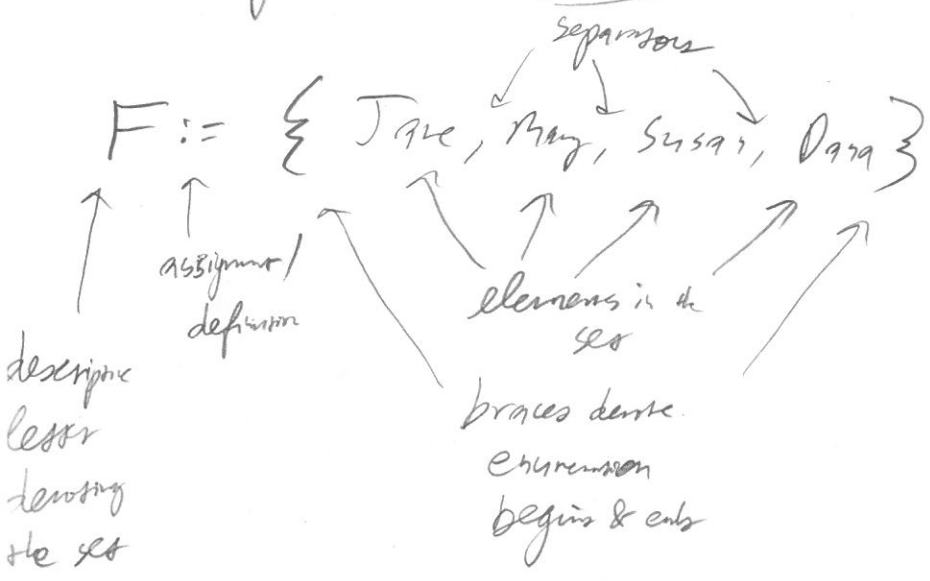 separators
F := { Jane, Mary, Susan, Dana }
assignment /
definition
elements in the
set
descriptive
letter
denoting
the set
braces denote
enumeration
begins & ends